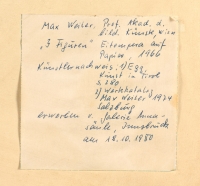 Max Weiler, Prof. Akad. d.
bild. Künste, Wien
"3 Figuren" E.tempera auf
Papier, 1966
Künstlernachweis: 1) Egg,
Kunst in Tirol
S. 280
2) Werkkatalog
Max Weiler 1974
Salzburg
erworben v. Galerie Anna-
säule, Innsbruck
am 18.10.1980